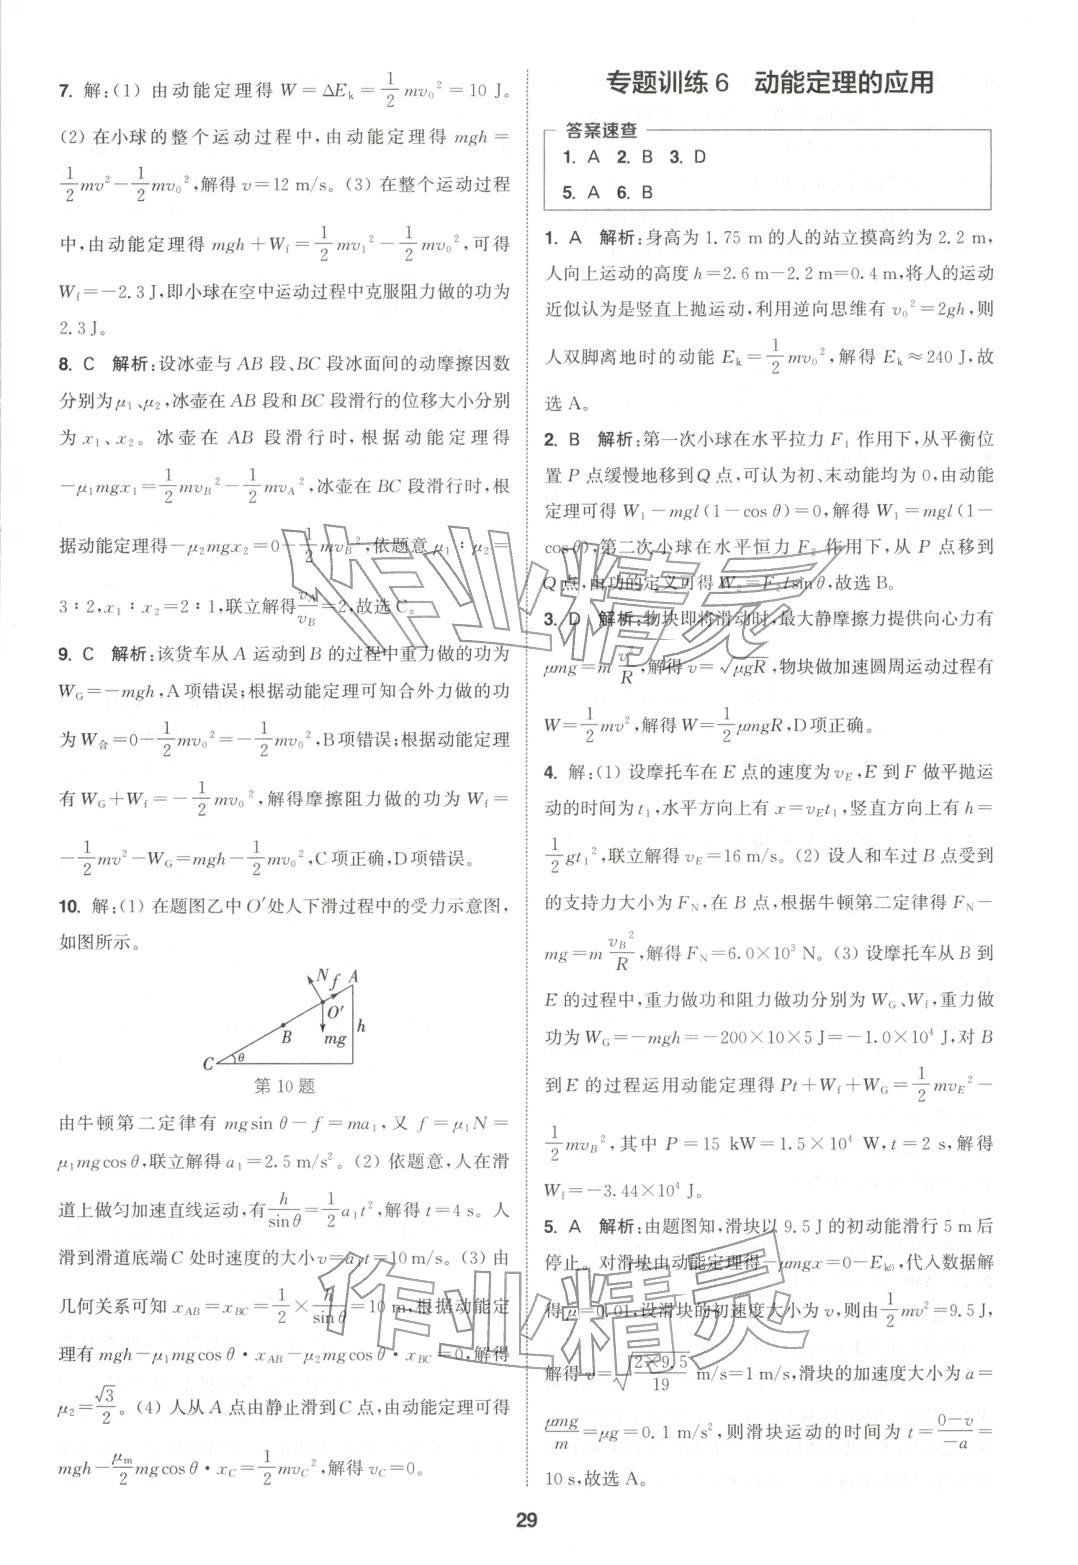 7. 解:(1) 由动能定理得 W=ΔEk=1/2 mv₀²=10 J。
(2) 在小球的整个运动过程中,由动能定理得 mgh=
1/2 mv²-1/2 mv₀²,解得 v=12 m/s。(3) 在整个运动过程
中,由动能定理得 mgh+Wf=1/2 mv₁²-1/2 mv₀²,可得
Wf=-2.3 J,即小球在空中运动过程中克服阻力做的功为
2.3 J。
8. C 解析:设冰壶与 AB 段、BC 段冰面间的动摩擦因数
分别为 μ₁、μ₂,冰壶在 AB 段和 BC 段滑行的位移大小分别
为 x₁、x₂。冰壶在 AB 段滑行时,根据动能定理得
-μ₁mgx₁=1/2 mvB²-1/2 mvA²,冰壶在 BC 段滑行时,根
据动能定理得-μ₂mgx₂=0-1/2 mvB²,依题意 μ₁∶μ₂=
3∶2,x₁∶x₂=2∶1,联立解得 vA/vB=2,故选 C。
9. C 解析:该货车从 A 运动到 B 的过程中重力做的功为
WG=-mgh,A 项错误;根据动能定理可知合外力做的功
为 W合=0-1/2 mv₀²=-1/2 mv₀²,B 项错误;根据动能定理
有 WG+Wf=-1/2 mv₀²,解得摩擦阻力做的功为 Wf=
-1/2 mv²-WG=mgh-1/2 mv₀²,C 项正确,D 项错误。
10. 解:(1) 在题图乙中 O′处人下滑过程中的受力示意图,
如图所示。
N f A
O′ h
B mg
C θ
第 10 题
由牛顿第二定律有 mgsin θ-f=ma₁,又 f=μ₁N=
μ₁mgcos θ,联立解得 a₁=2.5 m/s²。(2) 依题意,人在滑
道上做匀加速直线运动,有 h/sin θ=1/2 a₁t²,解得 t=4 s。人
滑到滑道底端 C 处时速度的大小 v=a₁t=10 m/s。(3) 由
几何关系可知 xAB=xBC=1/2×h/sin θ=10 m,根据动能定
理有 mgh-μ₁mgcos θ·xAB-μ₂mgcos θ·xBC=0,解得
μ₂=√3/2。(4) 人从 A 点由静止滑到 C 点,由动能定理可得
mgh-μm/2 mgcos θ·xC=1/2 mvC²,解得 vC=0。
专题训练 6 动能定理的应用
答案速查
1. A 2. B 3. D
5. A 6. B
1. A 解析:身高为 1.75 m 的人的站立摸高约为 2.2 m,
人向上运动的高度 h=2.6 m-2.2 m=0.4 m,将人的运动
近似认为是竖直上抛运动,利用逆向思维有 v₀²=2gh,则
人双脚离地时的动能 Ek=1/2 mv₀²,解得 Ek≈240 J,故
选 A。
2. B 解析:第一次小球在水平拉力 F₁ 作用下,从平衡位
置 P 点缓慢地移到 Q 点,可认为初、末动能均为 0,由动能
定理可得 W₁-mgl(1-cos θ)=0,解得 W₁=mgl(1-
cos θ),第二次小球在水平恒力 F₂ 作用下,从 P 点移到
Q 点,由功的定义可得 W₂=F₂lsin θ,故选 B。
3. D 解析:物块即将滑动时,最大静摩擦力提供向心力有
μmg=m v²/R,解得 v=√μgR,物块做加速圆周运动过程有
W=1/2 mv²,解得 W=1/2 μmgR,D 项正确。
4. 解:(1) 设摩托车在 E 点的速度为 vE,E 到 F 做平抛运
动的时间为 t₁,水平方向上有 x=vEt₁,竖直方向上有 h=
1/2 gt₁²,联立解得 vE=16 m/s。(2) 设人和车过 B 点受到
的支持力大小为 FN,在 B 点,根据牛顿第二定律得 FN-
mg=m vB²/R,解得 FN=6.0×10³ N。(3) 设摩托车从 B 到
E 的过程中,重力做功和阻力做功分别为 WG、Wf,重力做
功为 WG=-mgh=-200×10×5 J=-1.0×10⁴ J,对 B
到 E 的过程运用动能定理得 Pt+Wf+WG=1/2 mvE²-
1/2 mvB²,其中 P=15 kW=1.5×10⁴ W,t=2 s,解得
Wf=-3.44×10⁴ J。
5. A 解析:由题图知,滑块以 9.5 J 的初动能滑行 5 m 后
停止。对滑块由动能定理得-μmgx=0-Ek0,代入数据解
得 μ=0.01,设滑块的初速度大小为 v,则由 1/2 mv²=9.5 J,
解得 v=√(2×9.5/19) m/s=1 m/s,滑块的加速度大小为 a=
μmg/m=μg=0.1 m/s²,则滑块运动的时间为 t=(0-v)/(-a)=
10 s,故选 A。
29
作业精灵
作业精灵